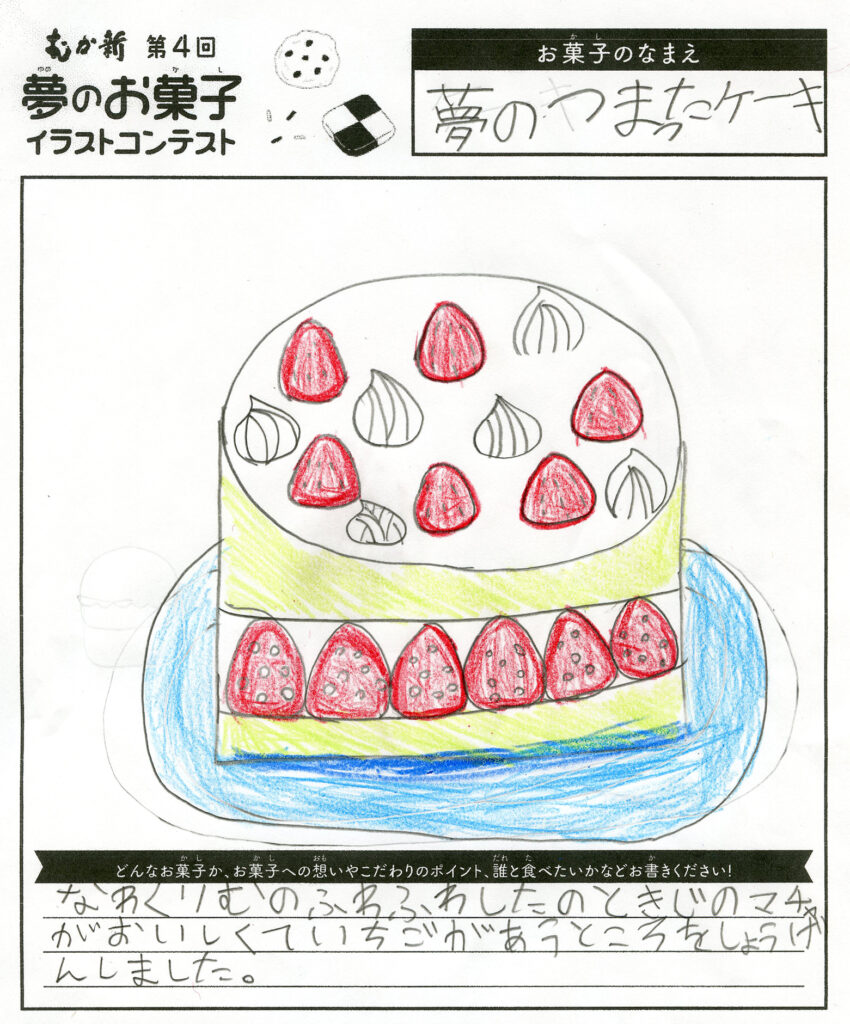 むか新 第4回
夢のお菓子
イラストコンテスト
お菓子のなまえ
夢のつまったケーキ
どんなお菓子か、お菓子への想いやこだわりのポイント、誰と食べたいかなどお書きください!
なわくりむのふわふわしたのときじのマチャ
がおいしくていちごがあうところをしょうげ
んしました。